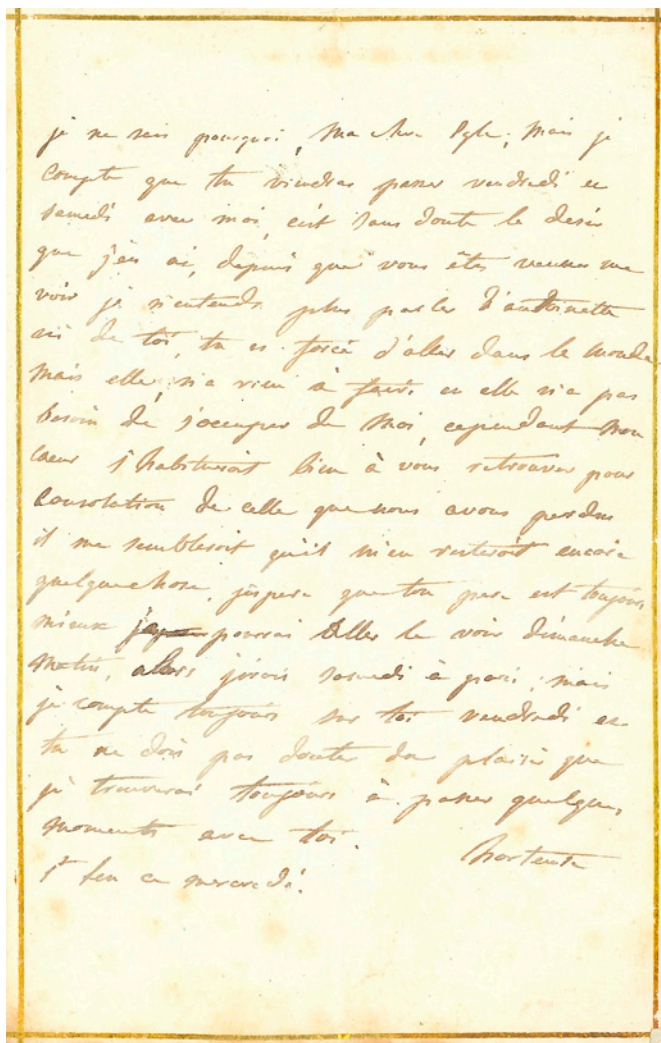 je ne sais pourquoi, ma chere Eglé, mais je
compte que tu viendras passer vendredi et
samedi avec moi, c'est sans doute le desir
que j'en ai, depuis que vous êtes venues me
voir je n'entends plus parler d'antoinette
ni de toi, tu es forcé d'aller dans le monde
mais elle n'a rien à faire et elle n'a pas
besoin de s'occuper de moi, cependant mon
coeur s'habitueroit bien à vous retrouver pour
consolation de celle que nous avons perdue
il me sembleroit qu'il m'en resteroit encore
quelque chose, j'espere que ton pere est toujours
mieux pourrai aller le voir dimanche
matin, alors j'irois samedi à paris, mais
je compte toujours sur toi vendredi et
tu ne dois pas douter du plaisir que
je trouverai toujours à passer quelques
moments avec toi.
hortense
st leu ce mercredi.